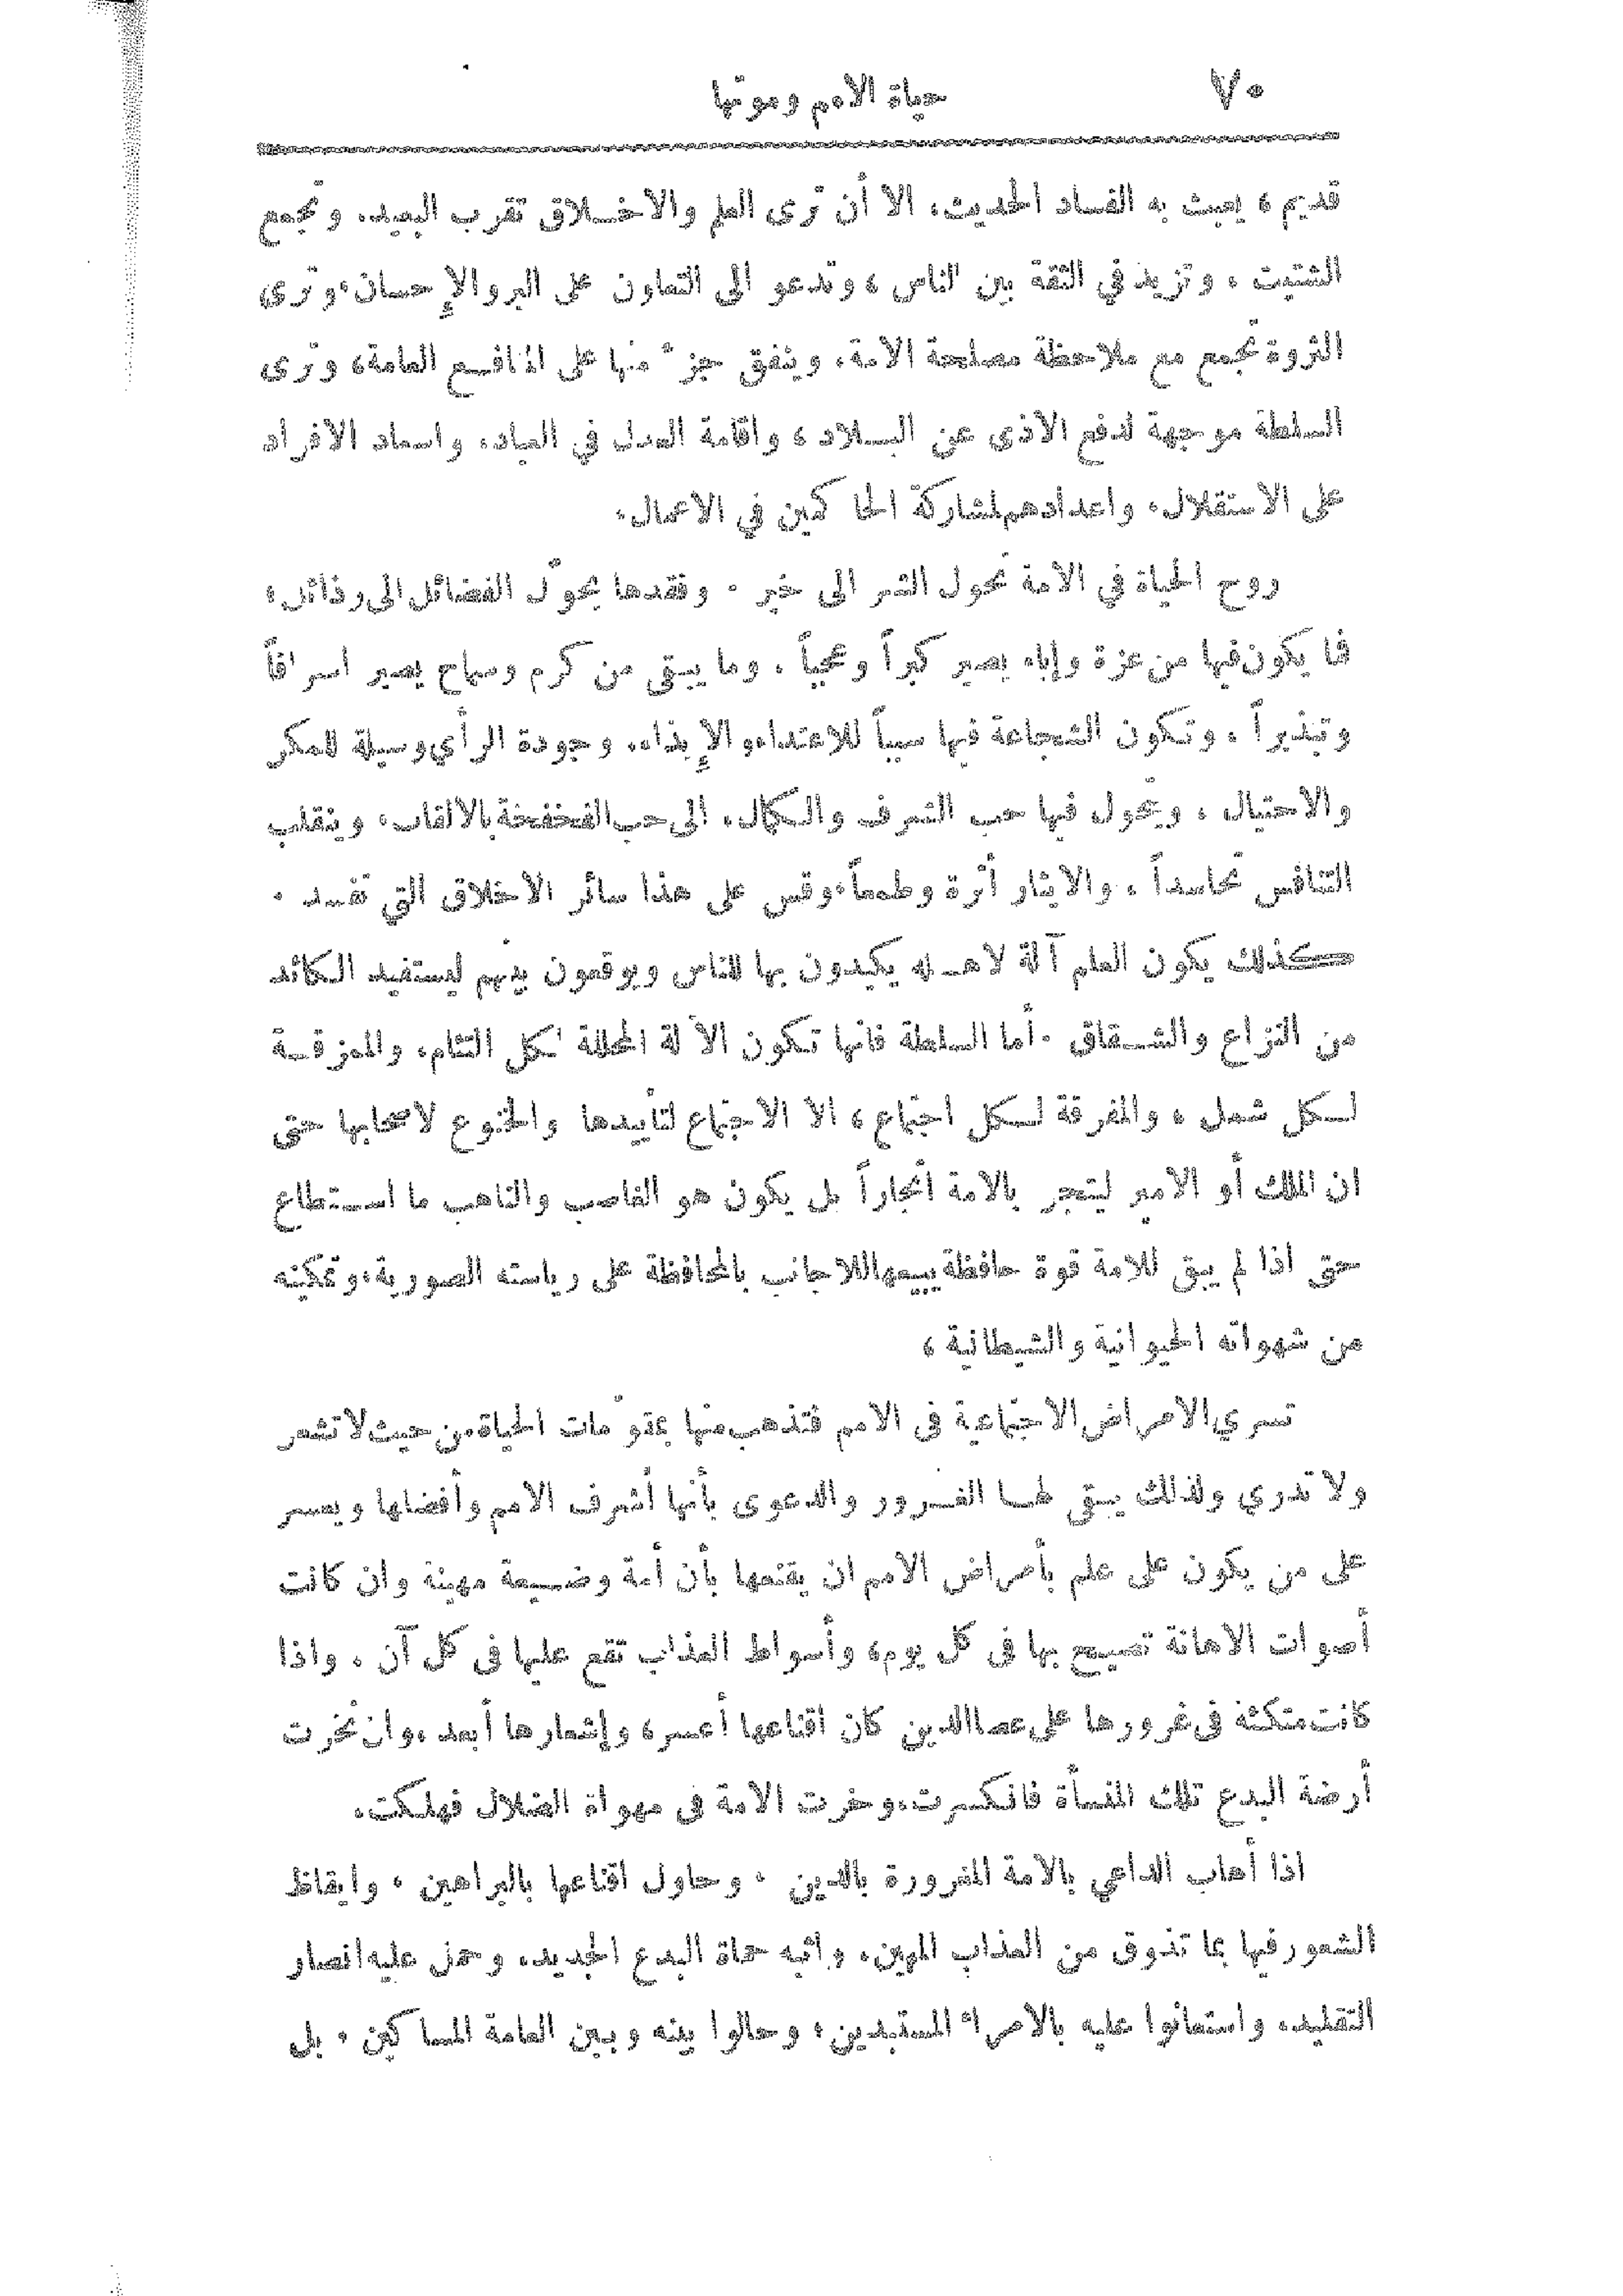 ٧٠
حياة الامم وموتها
قديم ، يعبث به الفساد الحديث، الا أن ترى العلم والاخلاق تقرب البعيد. وتجمع
الشتيت ، وتزيد في الثقة بين الناس ، وتدعو الى التعاون على البر والإحسان، وترى
الثروة تجمع مع ملاحظة مصلحة الامة، وينفق جزء منها على المنافع العامة، وترى
السلطة موجهة لدفع الاذى عن البلاد ، واقامة العدل في العباد، واسعاد الافراد
على الاستقلال، واعدادهم لمشاركة الحاكمين في الاعمال.
روح الحياة في الامة تحول الشر الى خير . وفقدها يحوّل الفضائل الى رذائل،
فما يكون فيها من عزة وإباء يصير كبراً وعجباً ، وما يبقى من كرم وسماح يصير اسرافاً
وتبذيراً ، وتكون الشجاعة فيها سبباً للاعتداء والإيذاء، وجودة الرأي وسيلة للمكر
والاحتيال ، ويتحول فيها حب الشرف والكمال، الى حب الفخفخة بالالقاب، وينقلب
التنافس تحاسداً ، والايثار أثرة وطمعاً، وقس على هذا سائر الاخلاق التي تفسد .
كذلك يكون العلم آلة لاهله يكيدون بها للناس ويوقعون بينهم ليستفيد الكائد
من النزاع والشقاق . أما السلطة فانها تكون الآلة المحللة لكل التئام، والممزقة
لكل شمل ، والمفرقة لكل اجتماع ، الا الاجتماع لتأييدها والخنوع لاصحابها حتى
ان الملك أو الامير ليتجر بالامة اتجاراً بل يكون هو الغاصب والناهب ما استطاع
حتى اذا لم يبق للامة قوة حافظة يبيعها للاجانب بالمحافظة على رياسته الصورية، وتمكينه
من شهواته الحيوانية والشيطانية ،
تسري الامراض الاجتماعية فى الامم فتذهب منها بمقوّمات الحياة من حيث لا تشعر
ولا تدري ولذلك يبقى لها الغرور والدعوى بأنها أشرف الامم وأفضلها ويعسر
على من يكون على علم بأمراض الامم ان يقنعها بأن أمة وضيعة مهينة وان كانت
أصوات الاهانة تصيح بها فى كل يوم، وأسواط العذاب تقع عليها فى كل آن . واذا
كانت متكئة فى غرورها على عصا الدين كان اقناعها أعسر، وإشعارها أبعد ، وان نخرت
أرضة البدع تلك المنسأة فانكسرت، وخرت الامة فى مهواة الضلال فهلكت.
اذا أهاب الداعي بالامة المغرورة بالدين ، وحاول اقناعها بالبراهين ، وايقاظ
الشعور فيها بما تذوق من العذاب المهين، واثبه حماة البدع الجديد، وحمل عليه انصار
التقليد، واستعانوا عليه بالامراء المستبدين، وحالوا بينه وبين العامة المساكين ، بل